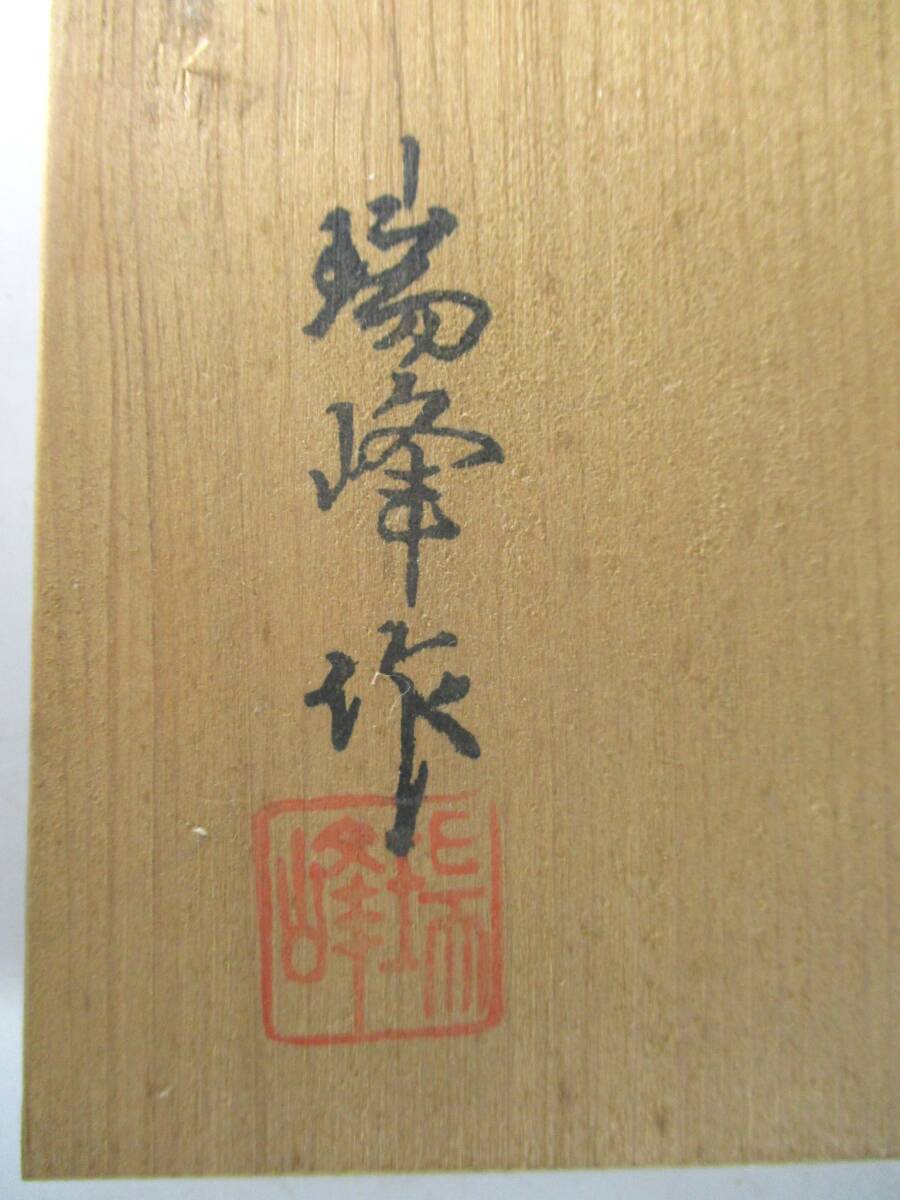 瑞峰作
瑞峰